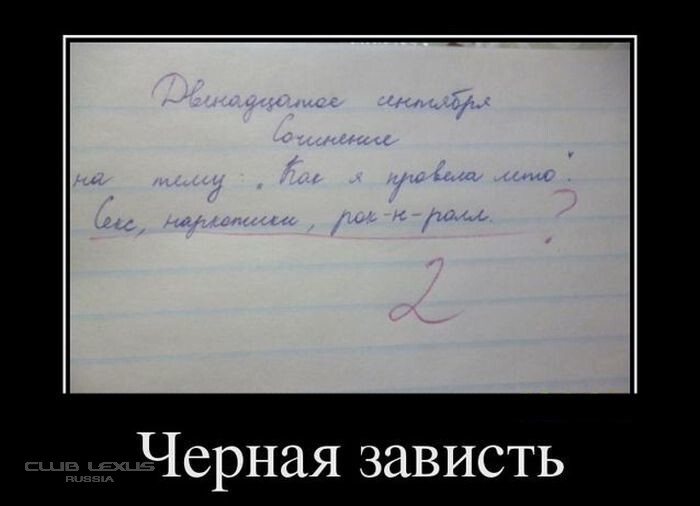 Двенадцатое сентября
Сочинение
на тему: „Как я провела лето".
Секс, наркотики, рок-н-ролл. ?
2
Черная зависть
CLUB LEXUS
RUSSIA